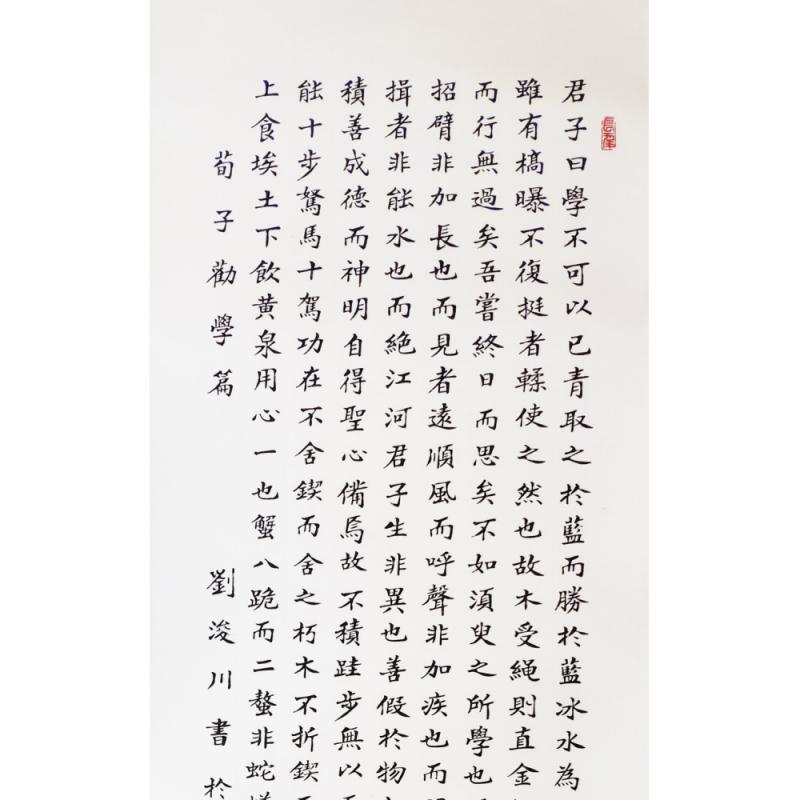 君子曰學不可以已青取之於藍而勝於藍冰水為
雖有槁曝不復挺者輮使之然也故木受繩則直金
而行無過矣吾嘗終日而思矣不如須臾之所學也
招臂非加長也而見者遠順風而呼聲非加疾也而
揖者非能水也而絕江河君子生非異也善假於物
積善成德而神明自得聖心備焉故不積跬步無以
能十步駑馬十駕功在不舍鍥而舍之朽木不折鍥
上食埃土下飲黃泉用心一也蟹八跪而二螯非蛇
荀子勸學篇 劉浚川書於